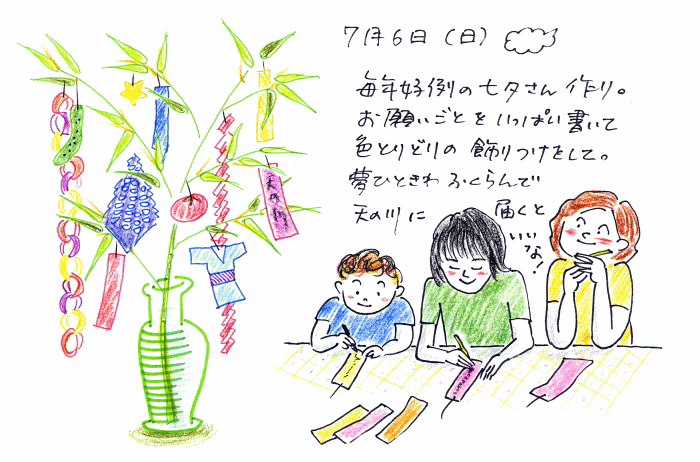 7月6日(日)
毎年好例の七夕さん作り。
お願いごとをいっぱい書いて
色とりどりの飾りつけをして。
夢ひときわふくらんで
天の川に 届くと
いいな!
天の川